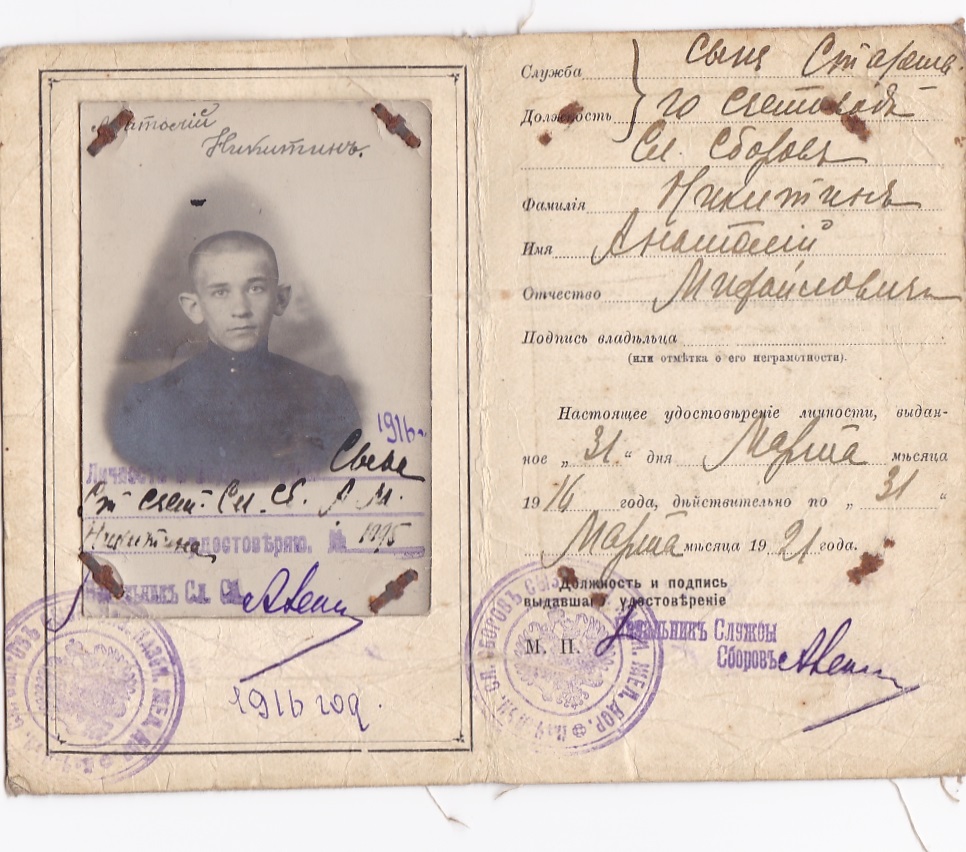 Анатолій
Никитинъ.
1916 г.
Личность
Сына
Ст счет. Сл. Сб. А. М.
Никитина удостовѣряю. № 1995
Начальникъ Сл. Сб.
1916 год.
Служба
Должность
сынъ Старша-
го счетовода
Сл. Сборовъ
Фамилія Никитинъ
Имя Анатолій
Отчество Михайловичъ
Подпись владѣльца
(или отмѣтка о его неграмотности).
Настоящее удостовѣреніе личности, выдан-
ное „ 31 “ дня Марта мѣсяца
19 16 года, дѣйствительно по „ 31 “
Марта мѣсяца 19 21 года.
Должность и подпись
выдавшаго удостовѣреніе
М. П.
Начальникъ Службы
Сборовъ